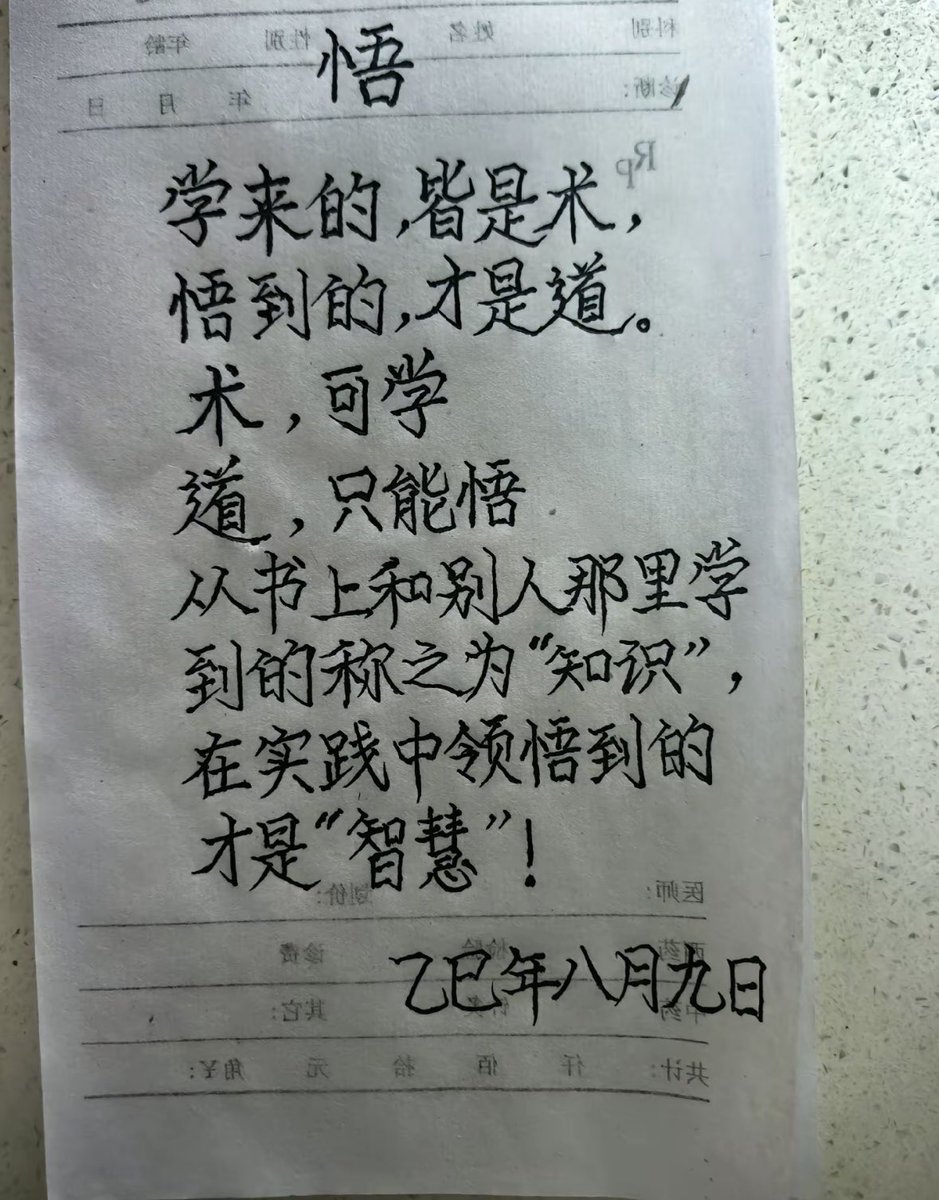 科别 姓名 性别 年龄
悟
诊断: 年 月 日
Rp
学来的,皆是术,
悟到的,才是道。
术,可学
道,只能悟
从书上和别人那里学
到的称之为“知识”,
在实践中领悟到的
才是“智慧”!
医师: 划价:
西药 检验 诊费
乙巳年八月九日
中药 其它:
共计: 仟 佰 拾 元 角¥: